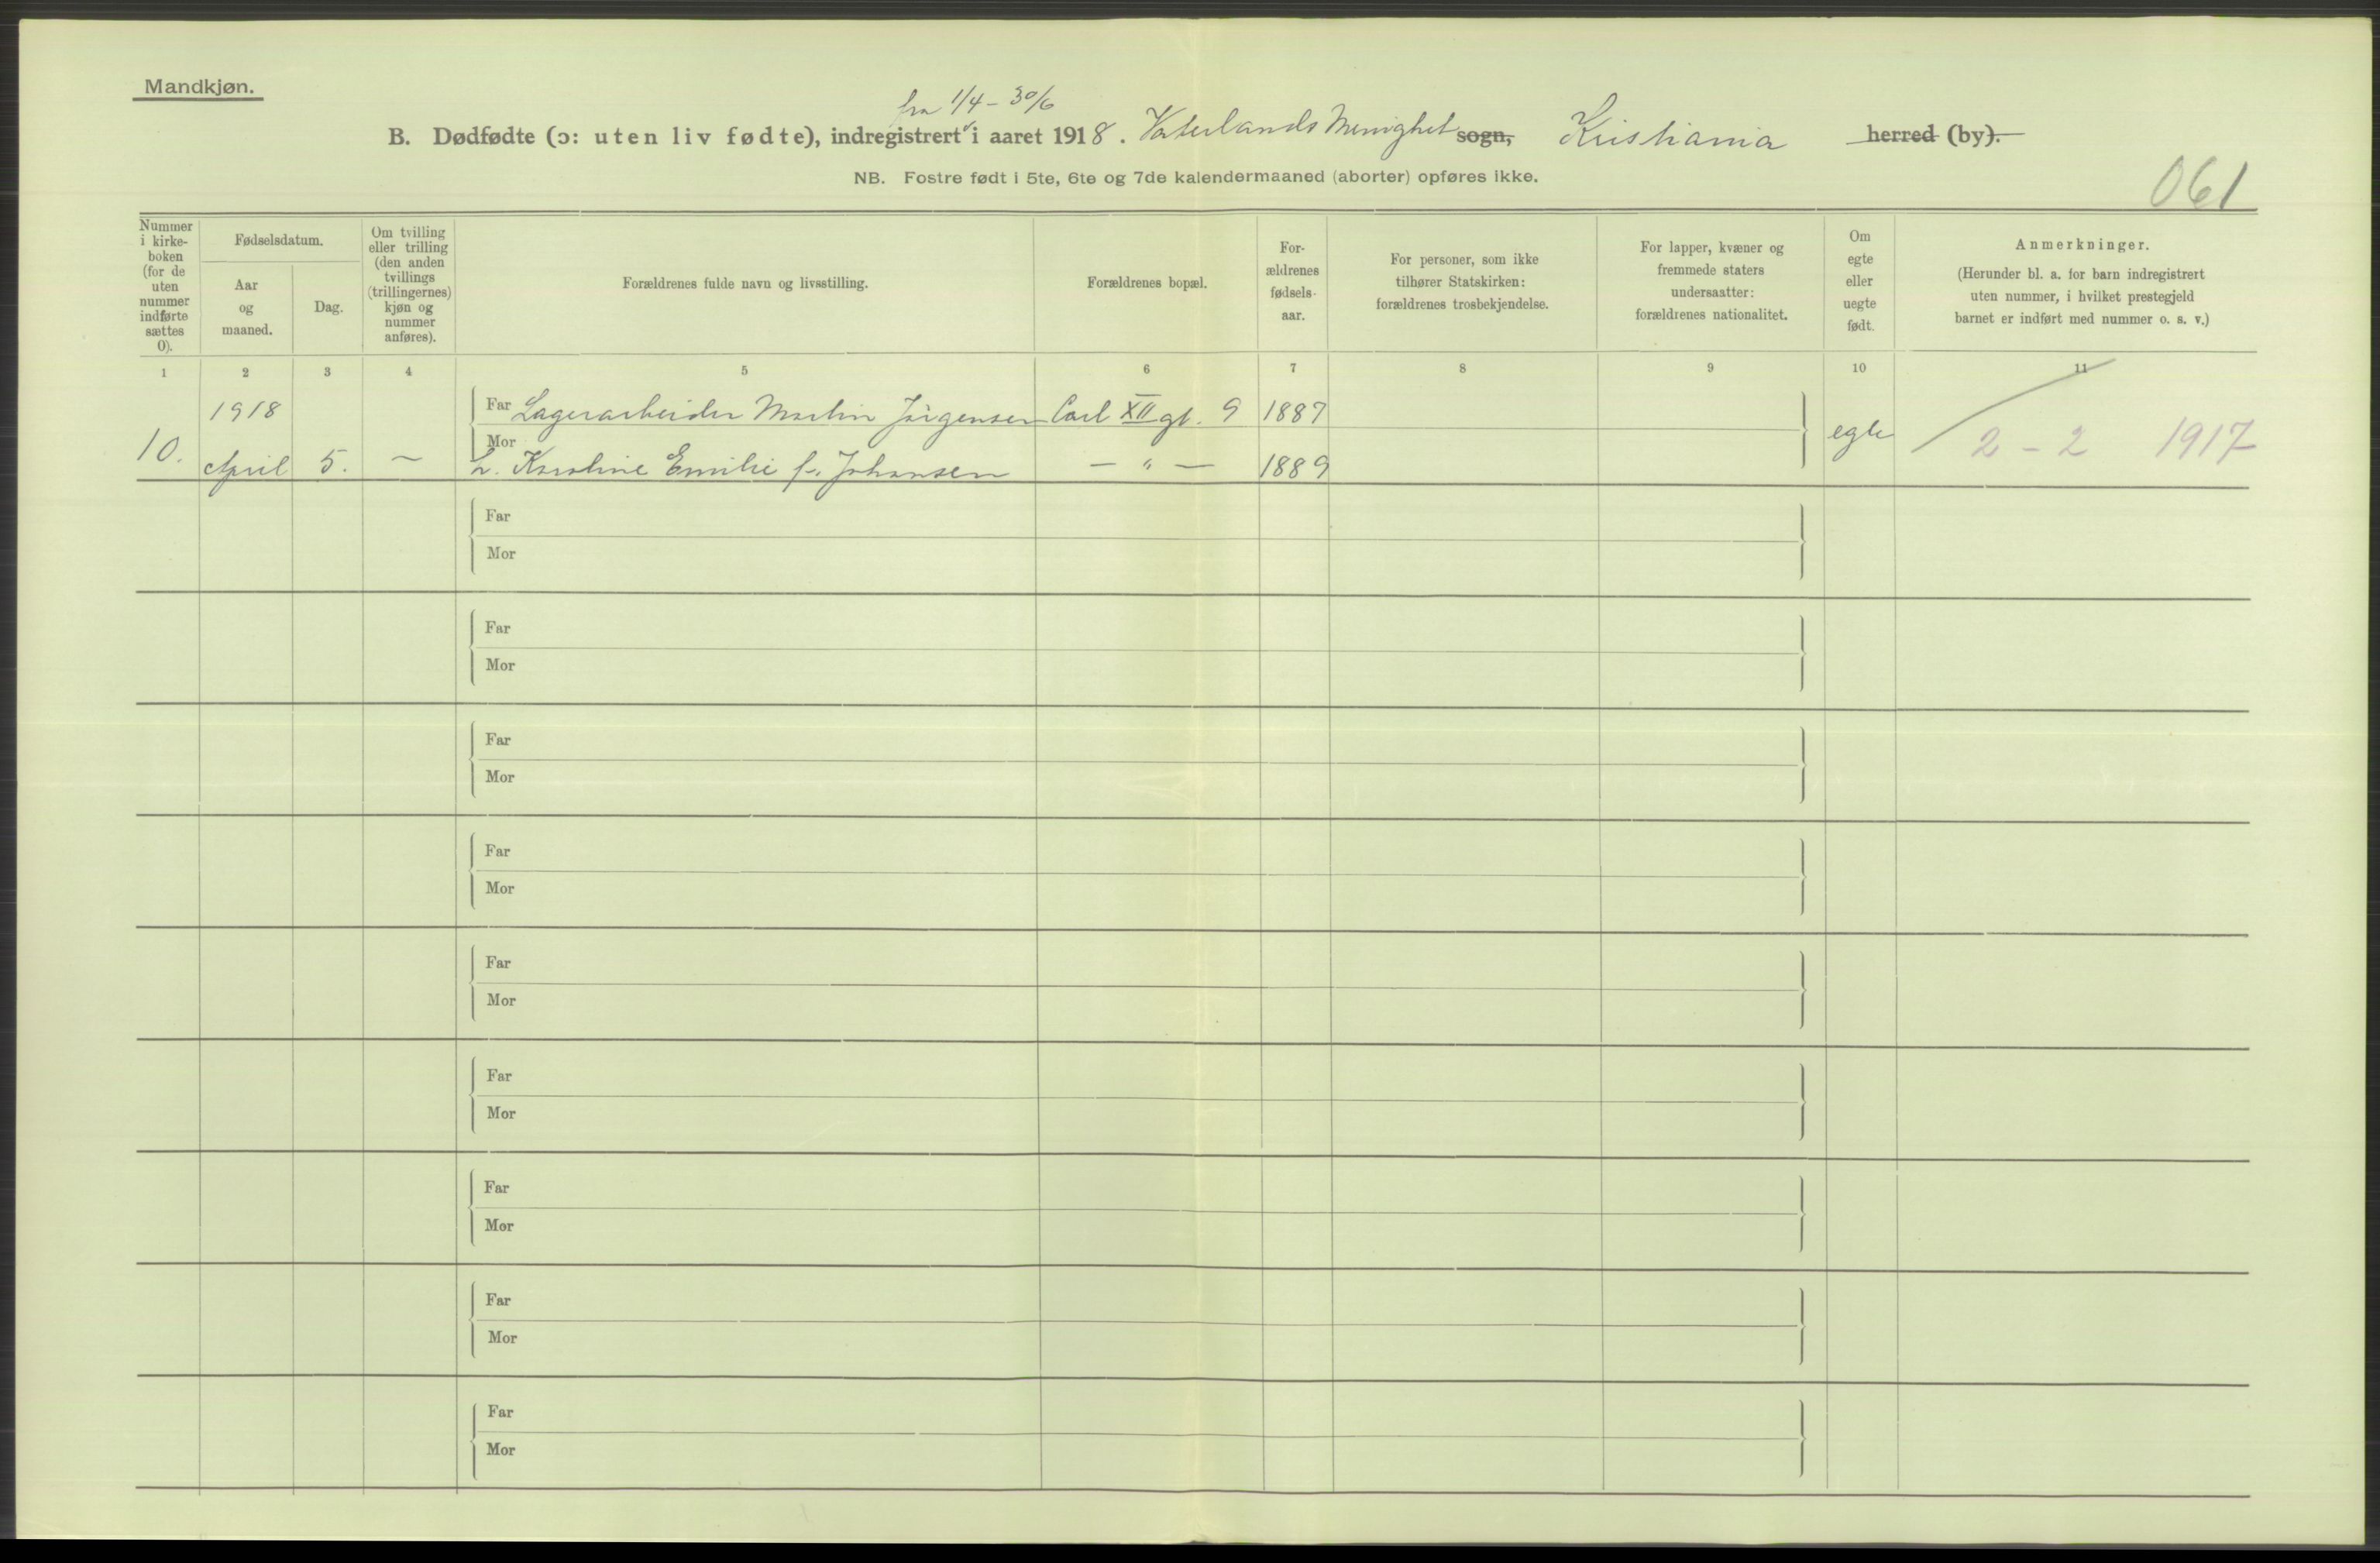 Mandkjøn.
fra 1/4 - 30/6
B. Dødfødte (ɔ: uten liv fødte), indregistrert i aaret 1918. Vaterlands Menighet sogn, Kristiania herred (by).
NB. Fostre født i 5te, 6te og 7de kalendermaaned (aborter) opføres ikke.
061
Nummer
i kirke-
boken
(for de
uten
nummer
indførte
sættes
0).
Fødselsdatum.
Aar
og
maaned.
Dag.
Om tvilling
eller trilling
(den anden
tvillings
(trillingernes)
kjøn og
nummer
anføres).
Forældrenes fulde navn og livsstilling.
Forældrenes bopæl.
For-
ældrenes
fødsels-
aar.
For personer, som ikke
tilhører Statskirken:
forældrenes trosbekjendelse.
For lapper, kvæner og
fremmede staters
undersaatter:
forældrenes nationalitet.
Om
egte
eller
uegte
født.
Anmerkninger.
(Herunder bl. a. for barn indregistrert
uten nummer, i hvilket prestegjeld
barnet er indført med nummer o. s. v.)
1 2 3 4 5 6 7 8 9 10 11
1918 Far Lagerarbeider Martin Jørgensen Carl XII gt. 9 1887
10. April 5. — Mor h. Karoline Emilie f. Johansen — " — 1889 egte 2 - 2 1917
Far
Mor
Far
Mor
Far
Mor
Far
Mor
Far
Mor
Far
Mor
Far
Mor
Far
Mor
Far
Mor